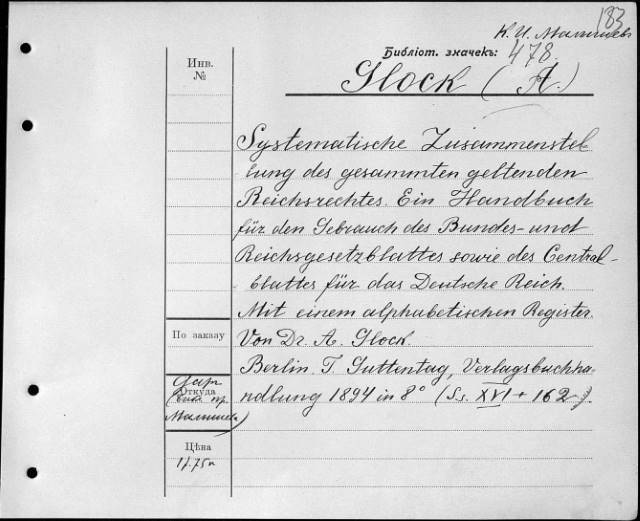 183
К. И. Малышевъ
Библіот. значекъ:
478.
Инв.
№
Glock (A.)
Systematische Zusammenstel
lung des gesammten geltenden
Reichsrechtes. Ein Handbuch
für den Gebrauch des Bundes- und
Reichsgesetzblattes sowie des Central-
blattes für das Deutsche Reich.
Mit einem alphabetischen Register.
По заказу
Von Dr. A. Glock.
Berlin. T. Guttentag, Verlagsbuchha-
Даръ
Откуда
ndlung 1894 in 8° (Ss. XVI + 162).
Малышева)
Цѣна